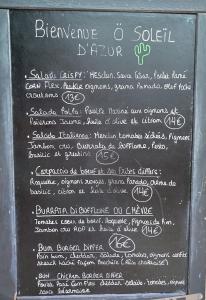 Bienvenue Ö SOLEIL
D'AZUR
. Salade CRISPY : Mesclun, Sauce César, Poulet Pané
CORN Flex, Pickle oignons, grana Panado, œuf Poché
croutons 13€
. Salade Pollo : Mariné aux oignons et
Poivrons Jaune, huile d'olive et citron 14€
. Salade Italienne : Mesclun tomates séchées, Pignons
Jambon cru, Burrata de Bufflone, Pesto,
basilic et gressins 15€
. Carpaccio de bœuf et ses frites :
Roquette, oignons rouges, grana Panado, crème de
basilic, citron et huile d'olive 14€
. BURRATA DI BUFFLONE OU CHÈVRE
Tomates cœur de bœuf, Roquette, Pignons de Pin,
Jambon cru AOP et huile d'olive 14€
. BUN BURGER DINER 16€
Pain bun, cheddar, salade, tomate, oignons confits
steack haché façon bouchère
. BUN CHICKEN BURGER DINER
Poulet Pané Corn Flex, cheddar, salade, tomate, oignons